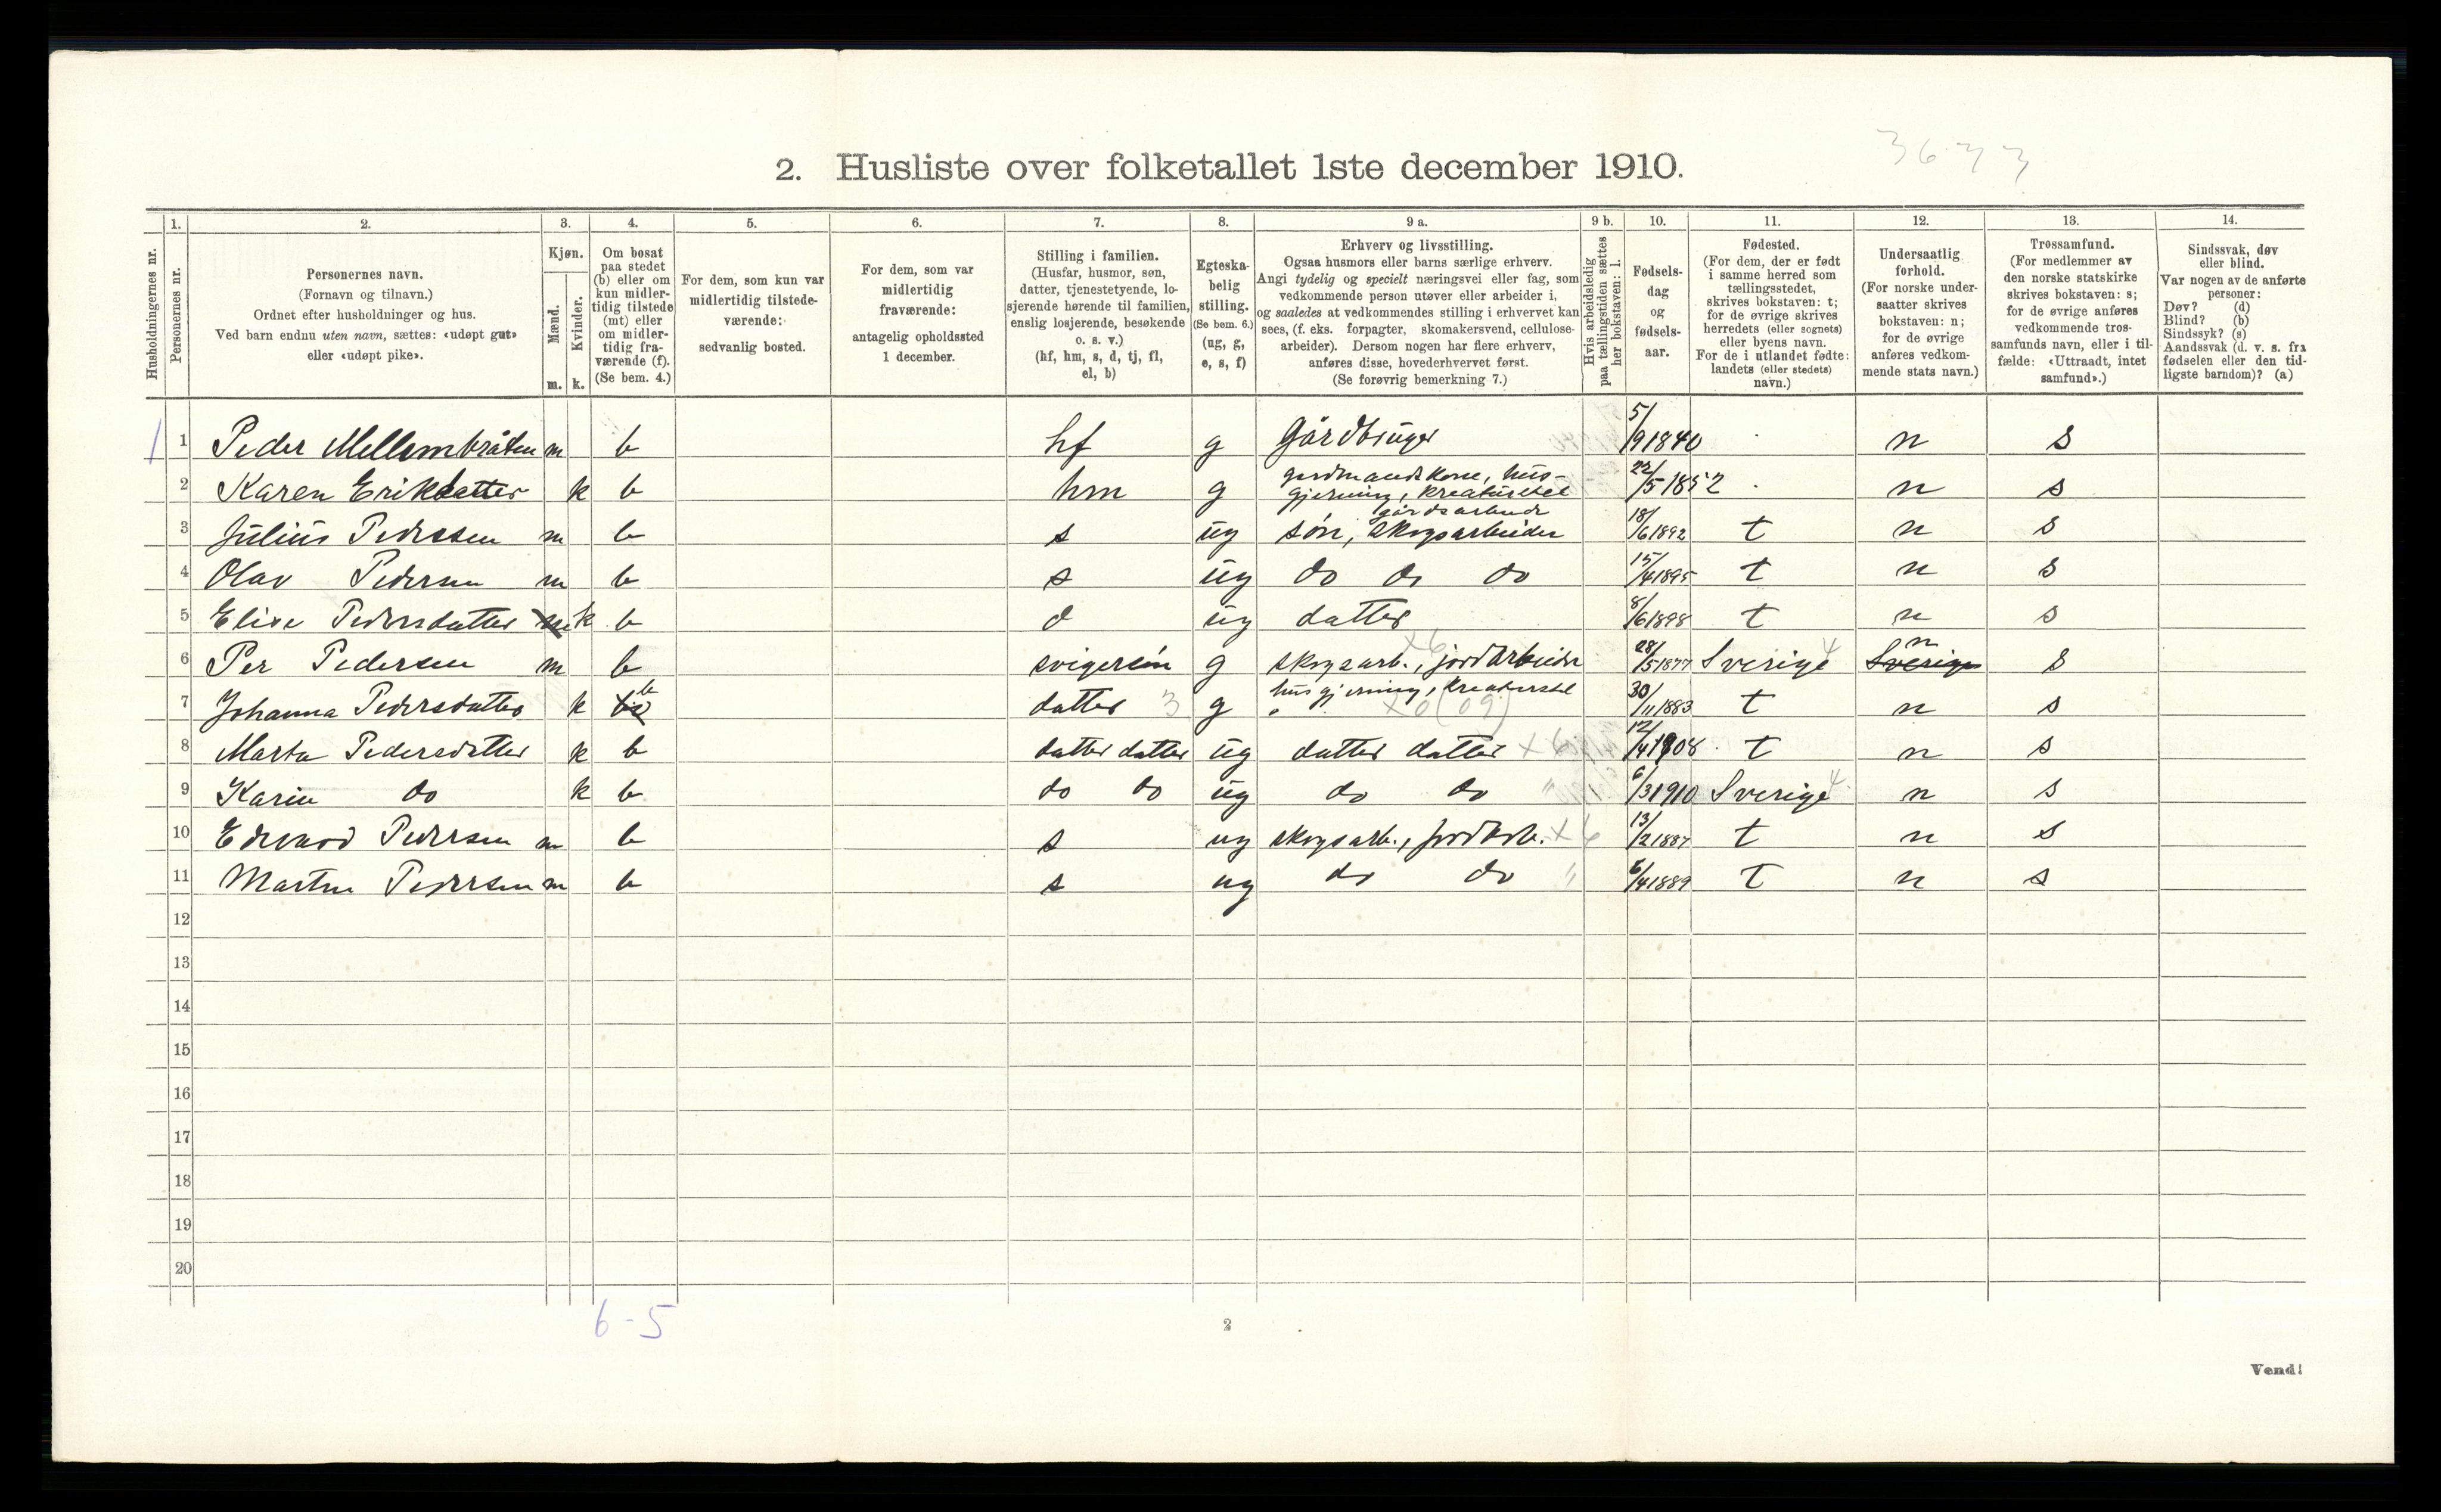 3677
2. Husliste over folketallet 1ste december 1910.
1. 2. 3. 4. 5. 6. 7. 8. 9 a. 9 b. 10. 11. 12. 13. 14.
Husholdningernes nr.
Personernes nr.
Personernes navn.
(Fornavn og tilnavn.)
Ordnet efter husholdninger og hus.
Ved barn endnu uten navn, sættes: «udøpt gut»
eller «udøpt pike».
Kjøn.
Mænd.
Kvinder.
m. k.
Om bosat
paa stedet
(b) eller om
kun midler-
tidig tilstede
(mt) eller
om midler-
tidig fra-
værende (f).
(Se bem. 4.)
For dem, som kun var
midlertidig tilstede-
værende:
sedvanlig bosted.
For dem, som var
midlertidig
fraværende:
antagelig opholdssted
1 december.
Stilling i familien.
(Husfar, husmor, søn,
datter, tjenestetyende, lo-
sjerende hørende til familien,
enslig losjerende, besøkende
o. s. v.)
(hf, hm, s, d, tj, fl,
el, b)
Egteska-
belig
stilling.
(Se bem. 6.)
(ug, g,
e, s, f)
Erhverv og livsstilling.
Ogsaa husmors eller barns særlige erhverv.
Angi tydelig og specielt næringsvei eller fag, som
vedkommende person utøver eller arbeider i,
og saaledes at vedkommendes stilling i erhvervet kan
sees, (f. eks. forpagter, skomakersvend, cellulose-
arbeider). Dersom nogen har flere erhverv,
anføres disse, hovederhvervet først.
(Se forøvrig bemerkning 7.)
Hvis arbeidsledig
paa tællingstiden sættes
her bokstaven: l.
Fødsels-
dag
og
fødsels-
aar.
Fødested.
(For dem, der er født
i samme herred som
tællingsstedet,
skrives bokstaven: t;
for de øvrige skrives
herredets (eller sognets)
eller byens navn.
For de i utlandet fødte:
landets (eller stedets)
navn.)
Undersaatlig
forhold.
(For norske under-
saatter skrives
bokstaven: n;
for de øvrige
anføres vedkom-
mende stats navn.)
Trossamfund.
(For medlemmer av
den norske statskirke
skrives bokstaven: s;
for de øvrige anføres
vedkommende tros-
samfunds navn, eller i til-
fælde: «Uttraadt, intet
samfund».)
Sindssvak, døv
eller blind.
Var nogen av de anførte
personer:
Døv? (d)
Blind? (b)
Sindssyk? (s)
Aandssvak (d. v. s. fra
fødselen eller den tid-
ligste barndom)? (a)
1 1 Peder Mellembråten m b hf g Gårdbruger 5/9 1840 n s
2 Karen Erikdatter k b hm g gardmandskone, hus-
gjerning, kreaturstel 22/5 1852 n s
3 Julius Pedersen m b s ug søn, skogsarbeider gårdsarbeide 18/6 1892 t n s
4 Olav Pedersen m b s ug do do do 15/4 1895 t n s
5 Elise Pedersdatter k b d ug datter 8/6 1898 t n s
6 Per Pedersen m b svigersön g skogsarb., jordarbeider x6 28/5 1877 Sverige 4 Sverige n s
7 Johanna Pedersdatter k b datter 3 g husgjerning, kreaturstel x6 (09) 30/11 1883 t n s
8 Marta Pedersdatter k b datter datter ug datter datter x 6 12/4 1908 t n s
9 Karin do k b do do ug do do " 6/3 1910 Sverige 4 n s
10 Edvard Pedersen m b s ug skogsarb., jordarb. x 6 13/2 1887 t n s
11 Martin Pedersen m b s ug do do " 6/4 1889 t n s
12
13
14
15
16
17
18
19
20
6-5
2
Vend!